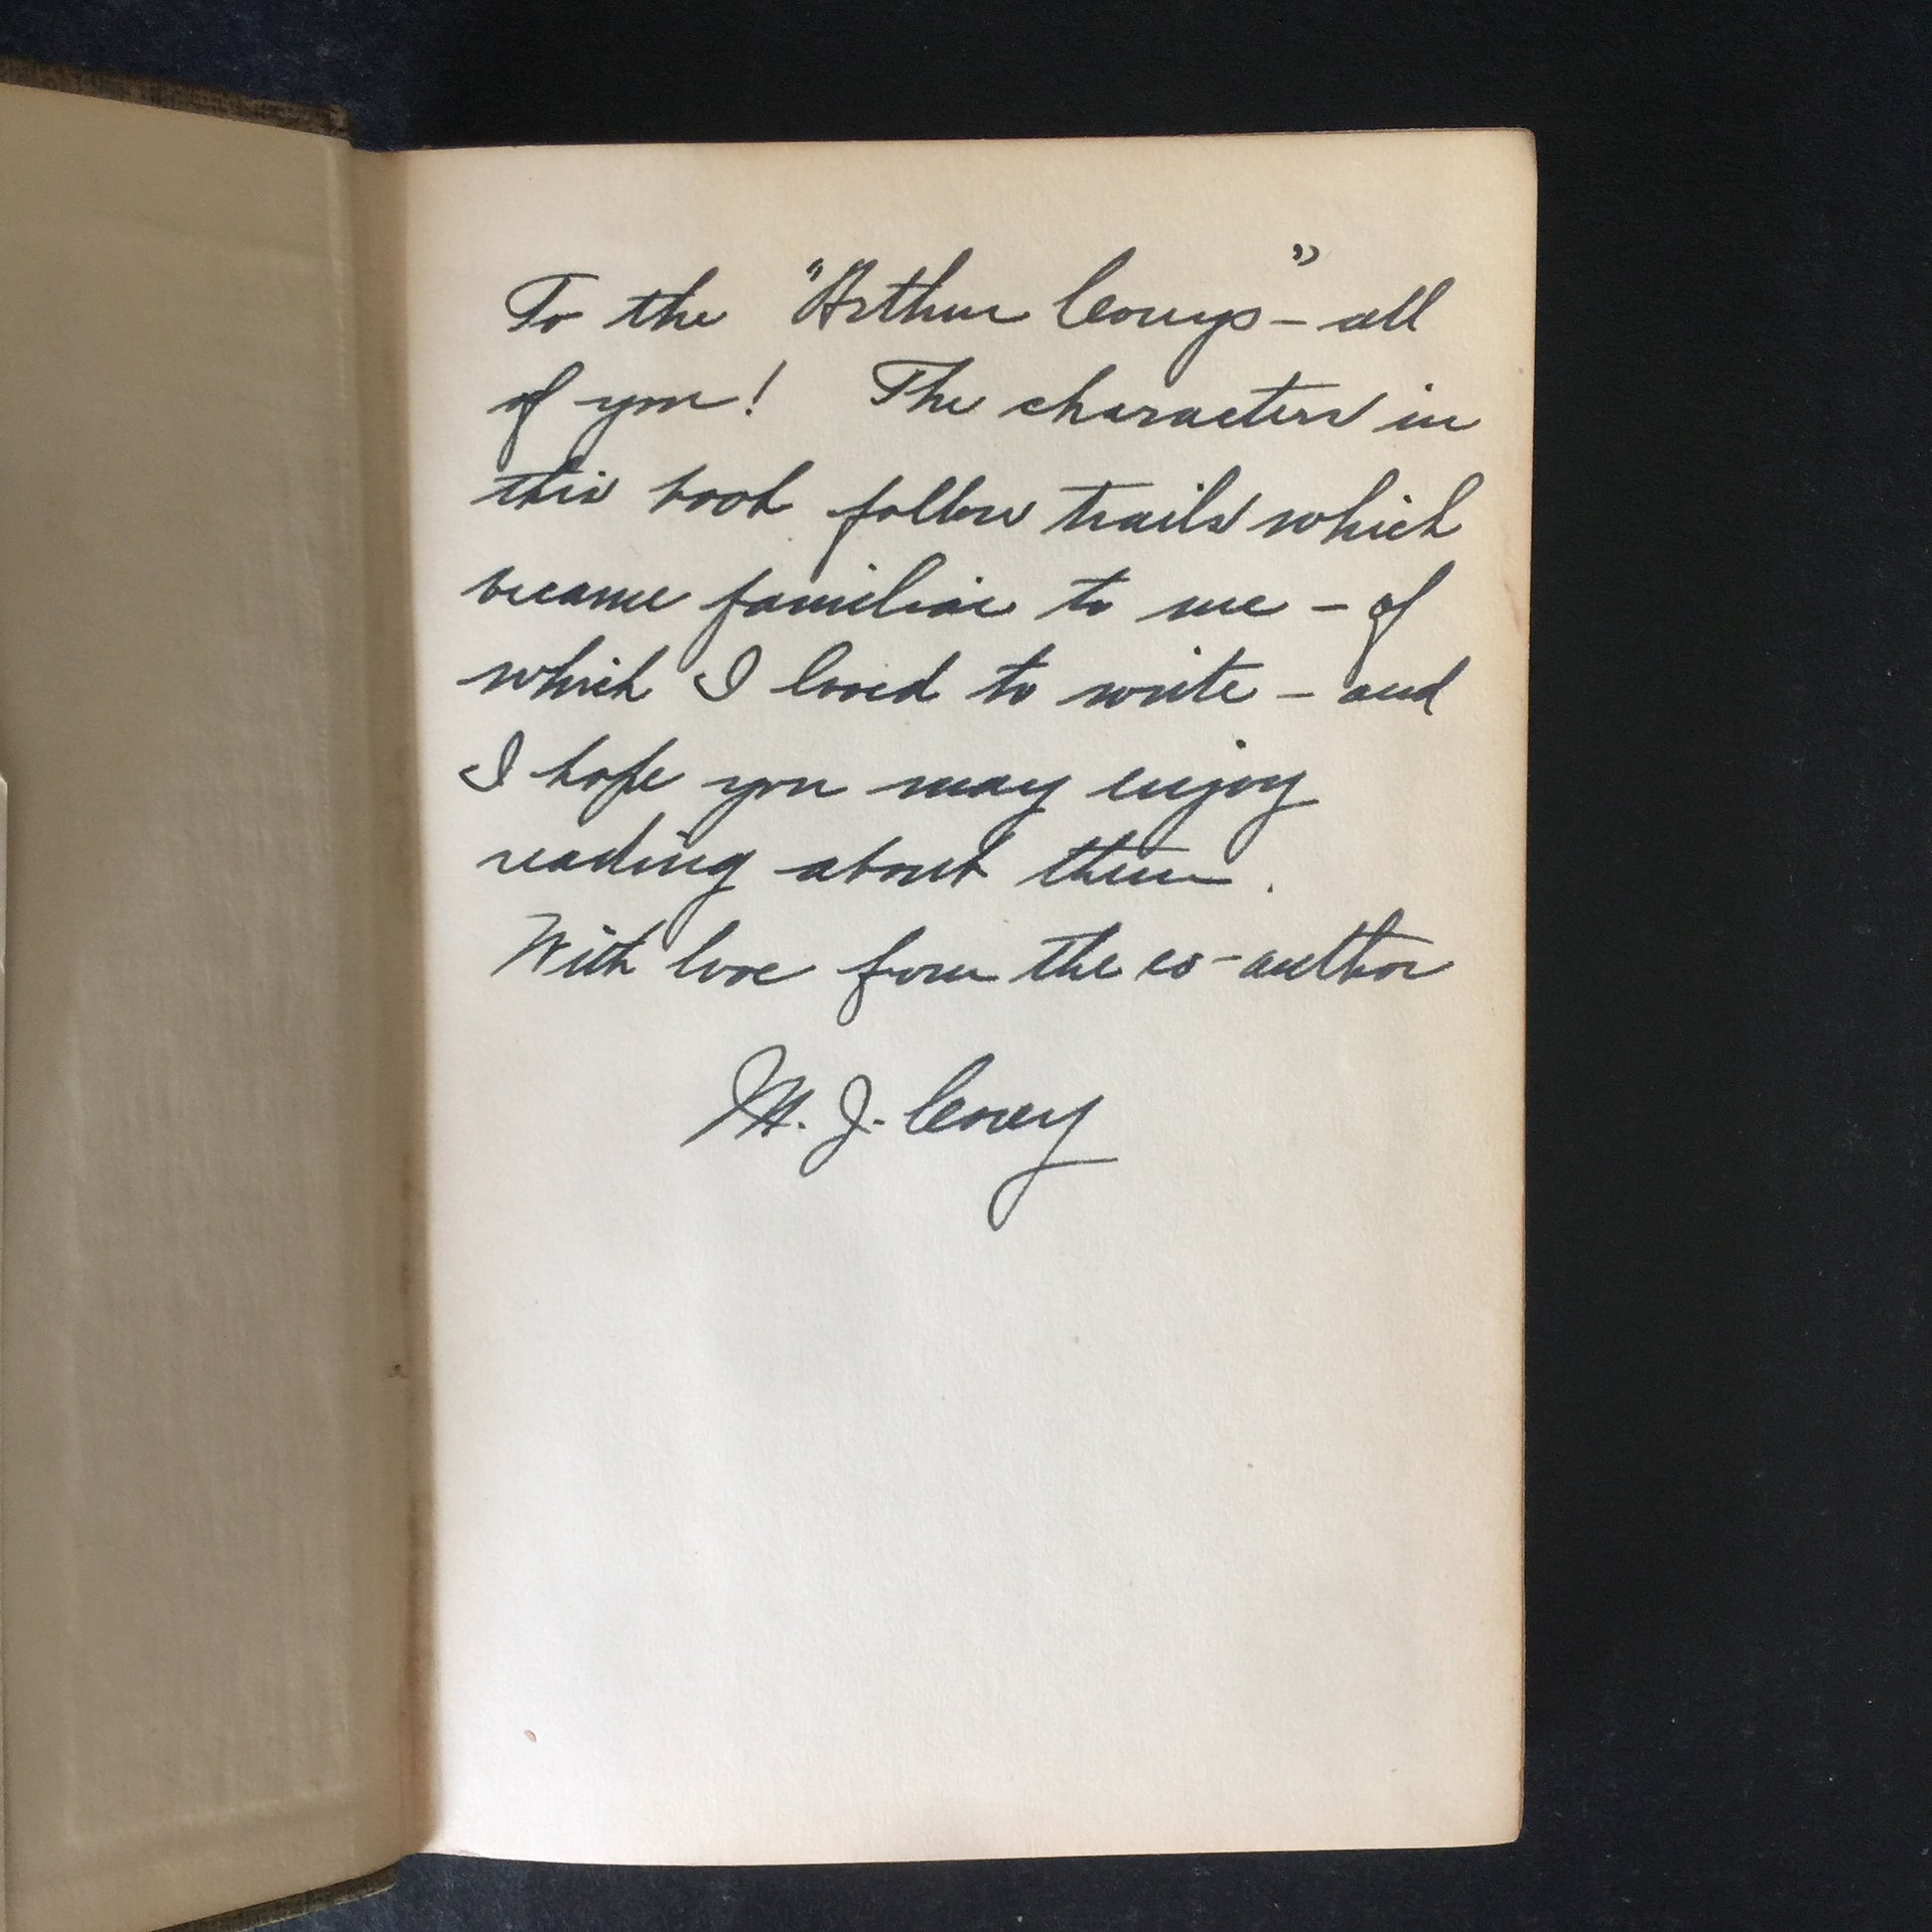 To the "Arthur Coreys" - all
of you! The characters in
this book follow trails which
became familiar to me - of
which I loved to write - and
I hope you may enjoy
reading about them.
With love from the co-author
M. J. Corey